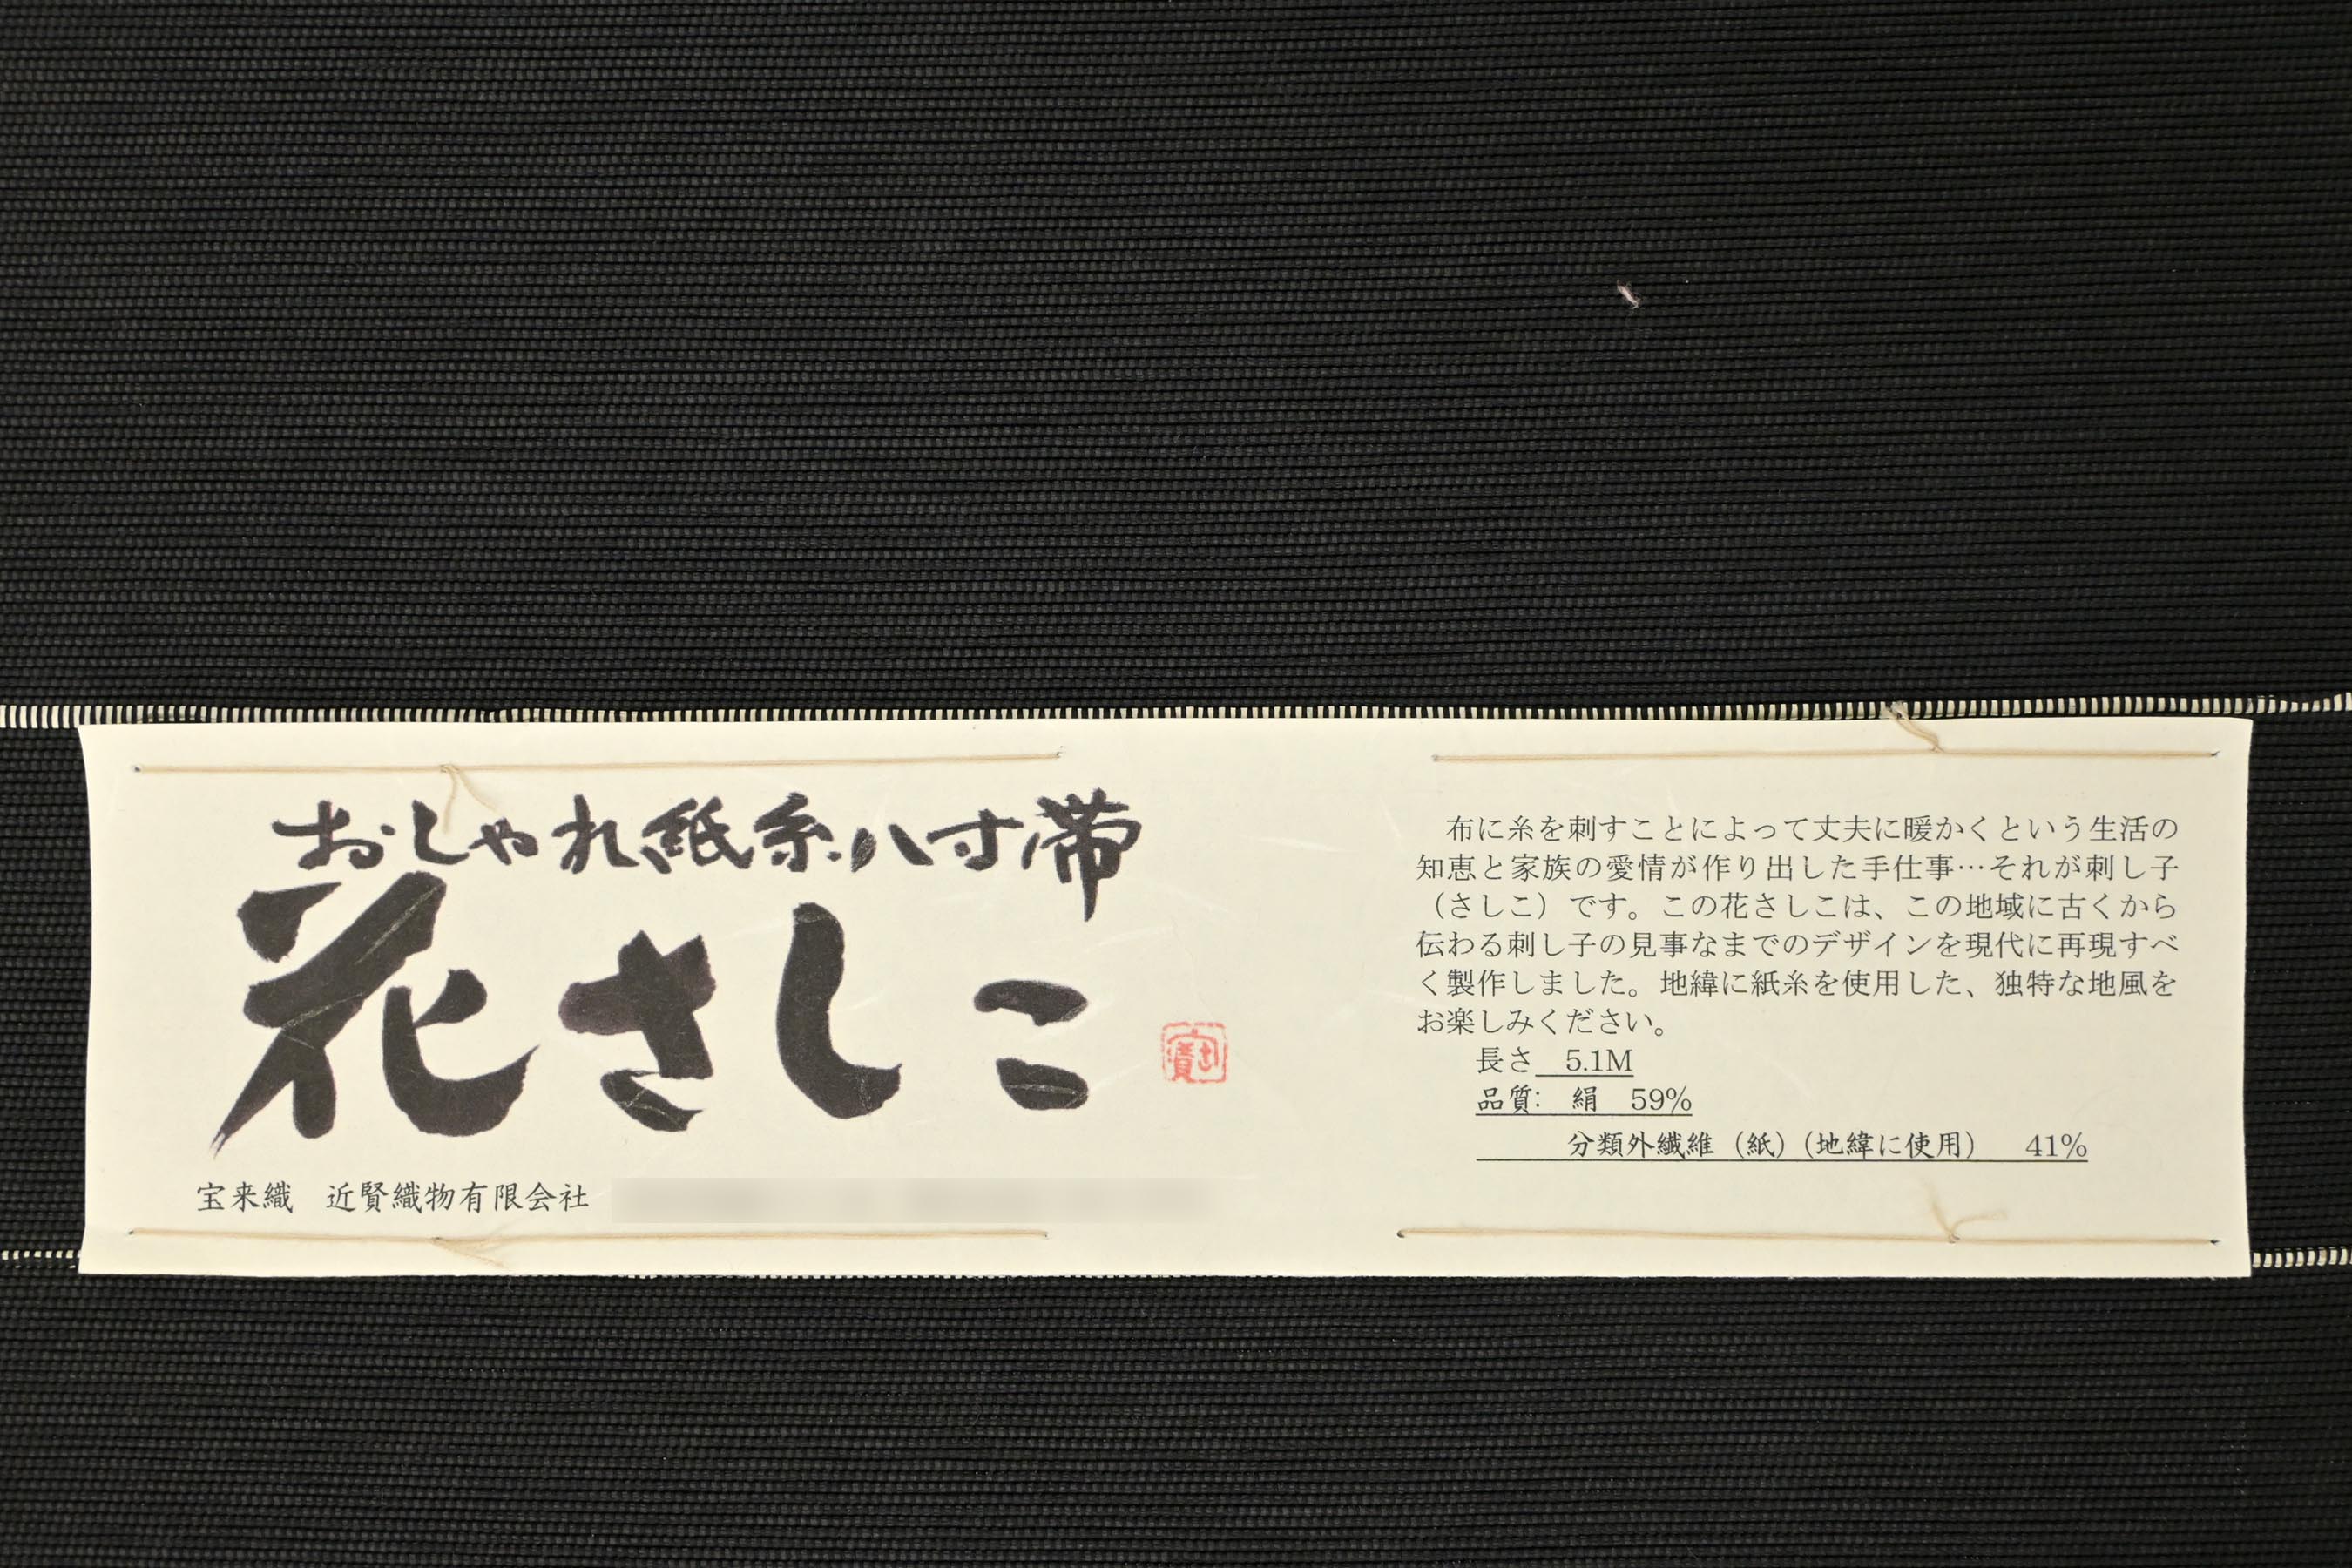 おしゃれ紙糸八寸帯
花さしこ
宝来織　近賢織物有限会社
布に糸を刺すことによって丈夫に暖かくという生活の
知恵と家族の愛情が作り出した手仕事…それが刺し子
（さしこ）です。この花さしこは、この地域に古くから
伝わる刺し子の見事なまでのデザインを現代に再現すべ
く製作しました。地緯に紙糸を使用した、独特な地風を
お楽しみください。
長さ　5.1M
品質：　絹　59%
分類外繊維（紙）（地緯に使用）　41%